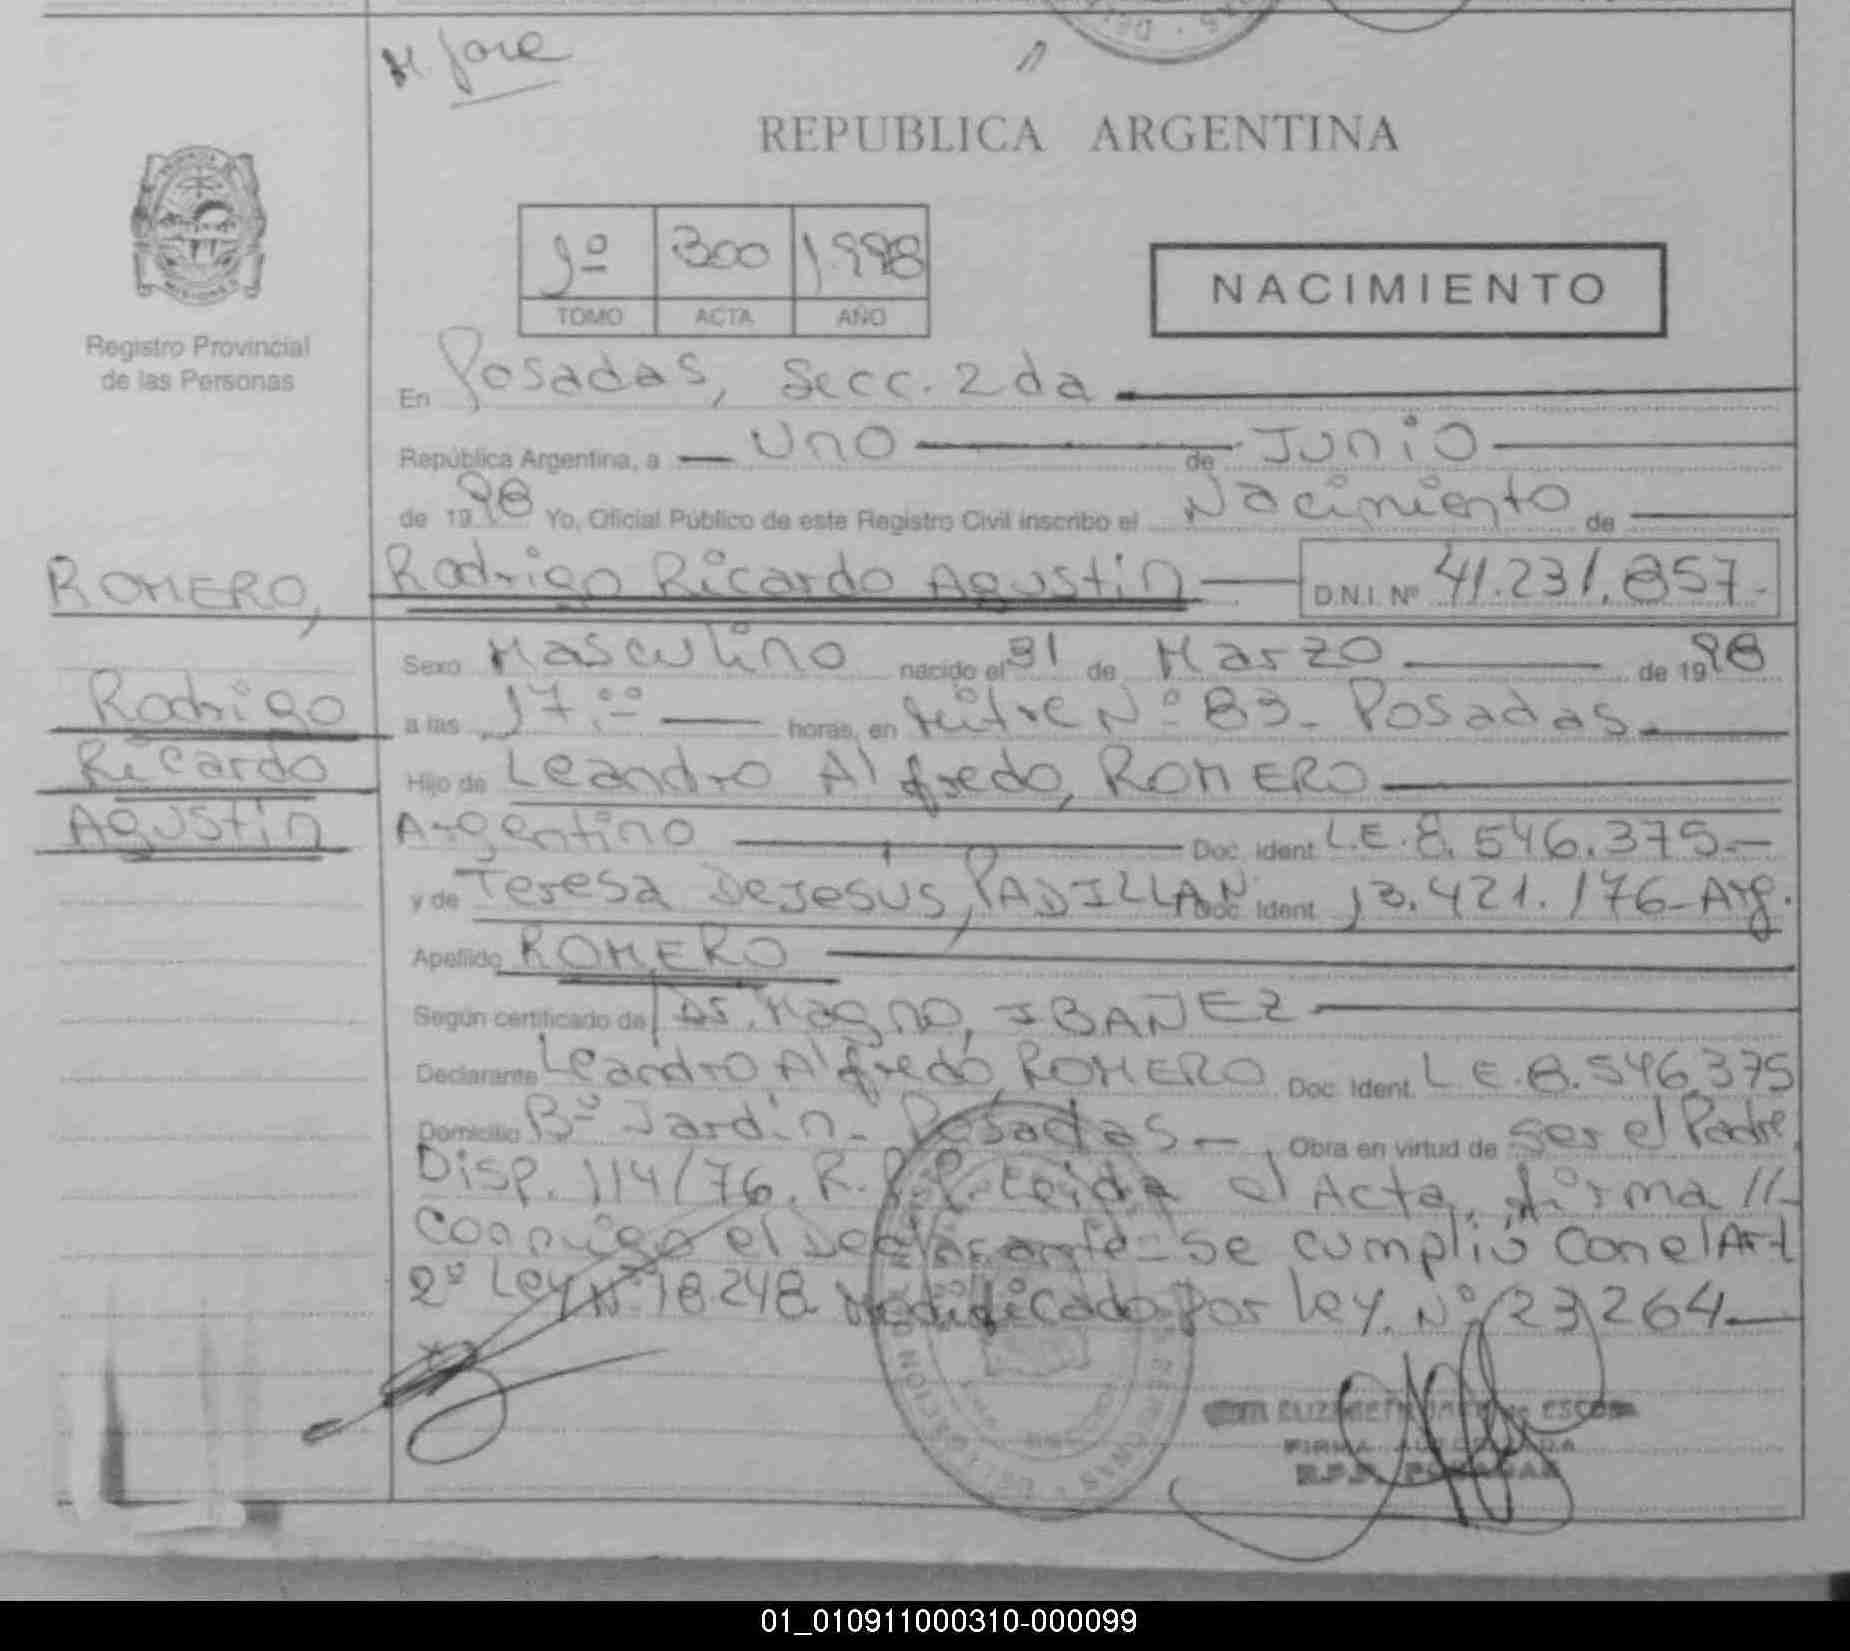 M José
REPUBLICA ARGENTINA
1º 300 1.998
TOMO ACTA AÑO
NACIMIENTO
Registro Provincial
de las Personas
En Posadas, Secc. 2da
República Argentina, a Uno de Junio
de 1998 Yo, Oficial Público de este Registro Civil inscribo el Nacimiento de
ROMERO, Rodrigo Ricardo Agustin D.N.I. Nº 41.231.857.-
Sexo Masculino nacido el 31 de Marzo de 1998
Rodrigo
a las 17.ºº horas, en Mitre Nº 83- Posadas.
Ricardo
Hijo de Leandro Alfredo, ROMERO
Agustin
Argentino Doc. Ident L.E.8.546.375.-
y de Teresa DeJesús, PADILLA Doc. Ident 13.421.176-Arg.
Apellido ROMERO
Según certificado de Dr. Magno, IBAÑEZ
Declarante Leandro Alfredo ROMERO Doc. Ident. LE.8.546.375
Domicilio Bº Jardin- Posadas.- Obra en virtud de ser el Padre.
Disp. 114/76. R. Leida el Acta, firma //-
Conmigo el Declarante- Se cumplió con el Art
2º Ley Nº 18.248 Modificado por Ley. Nº 23264
FIRMA AUTORIZADA
R.P.P. POSADAS
01_010911000310-000099